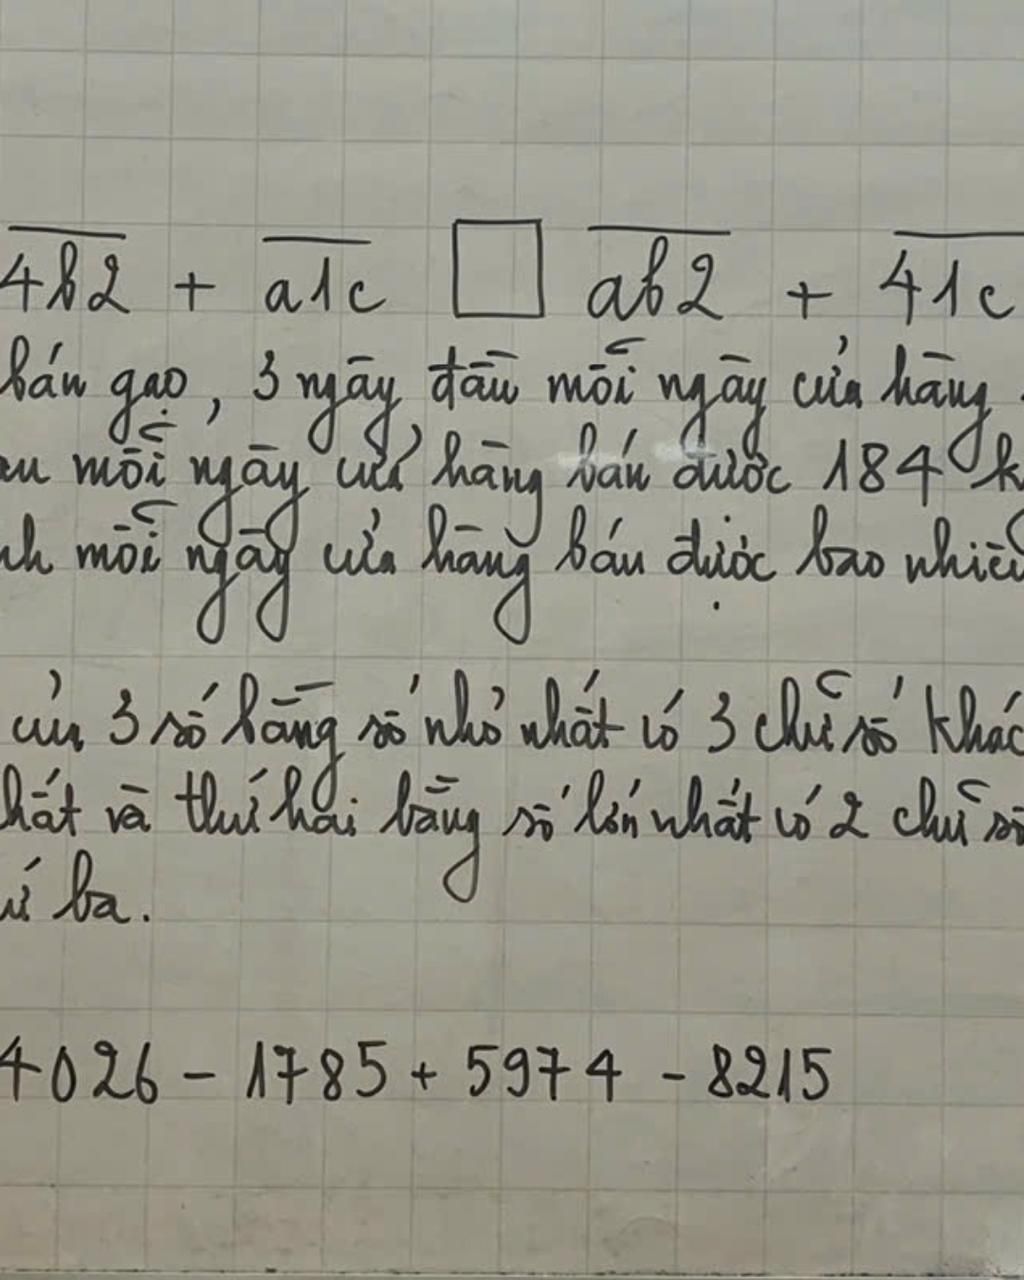 4b2 + a1c □ ab2 + 41c
bán gạo, 3 ngày đầu mỗi ngày cửa hàng
mỗi ngày cửa hàng bán được 184 k
mỗi ngày cửa hàng bán được bao nhiêu
của 3 số bằng số nhỏ nhất có 3 chữ số khác
hất và thứ hai bằng số lớn nhất có 2 chữ số
ba.
4026 - 1785 + 5974 - 8215